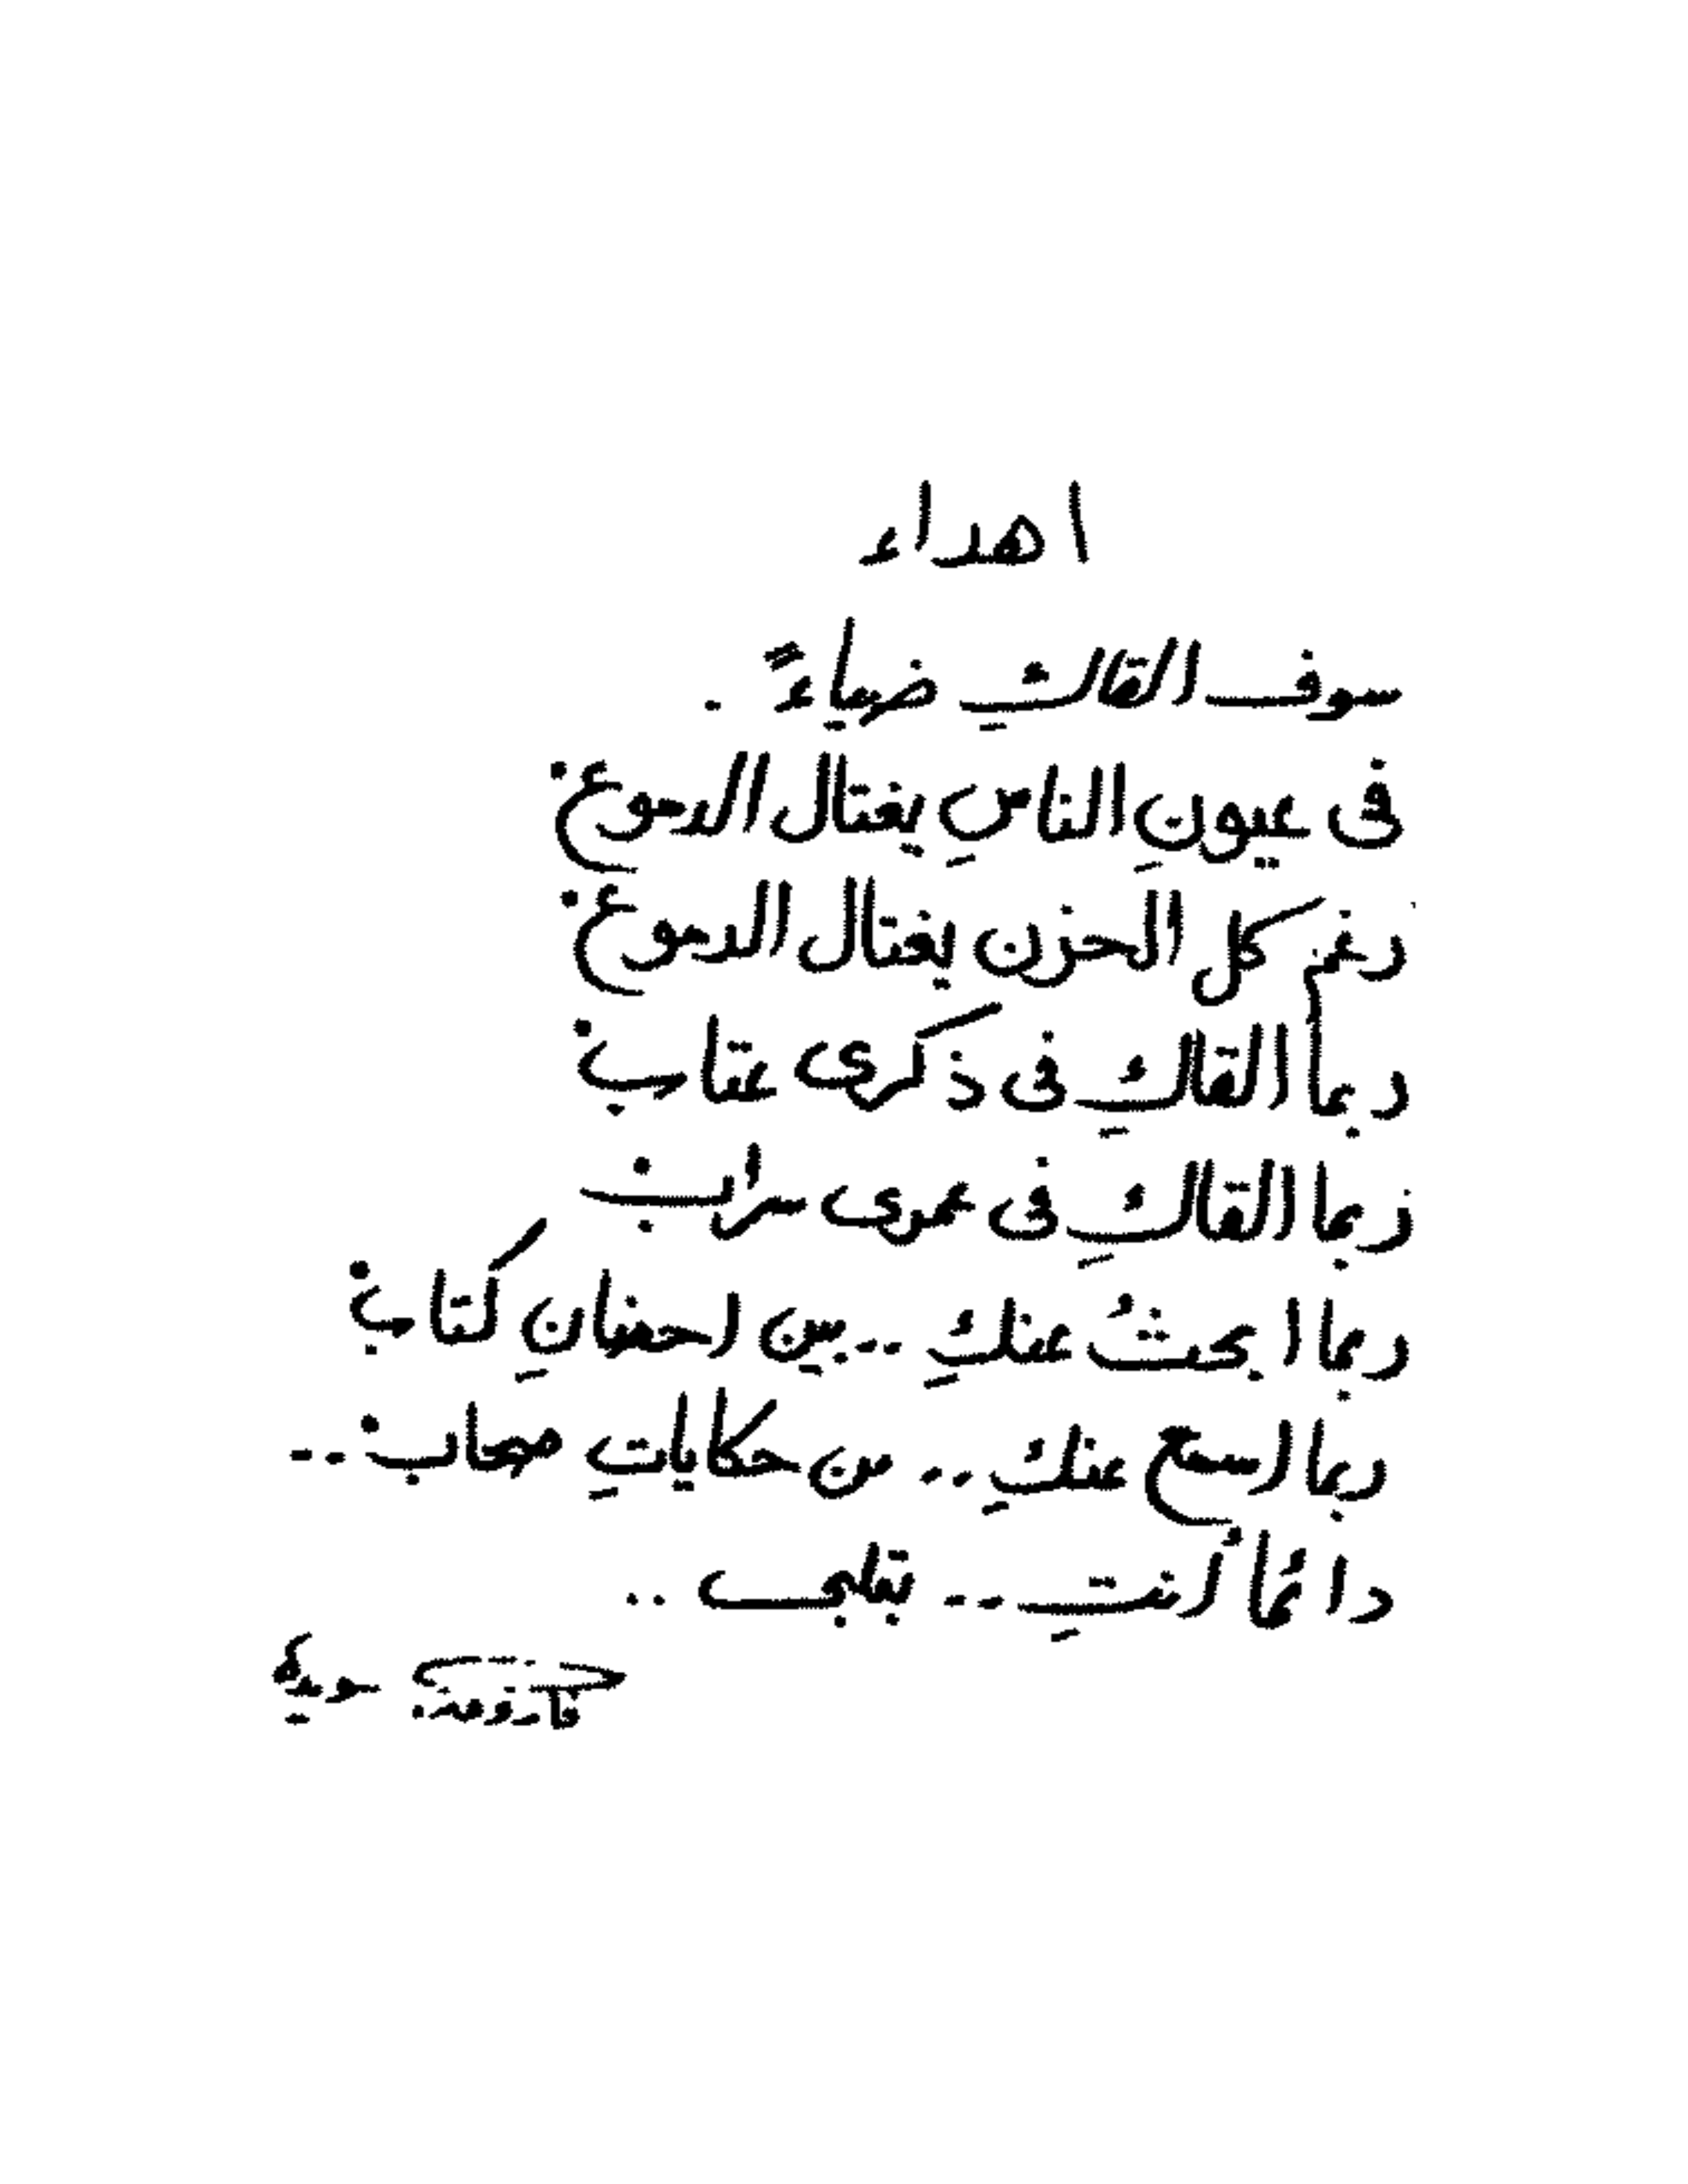 اهداء
سوف القاكِ ضياءً .
فى عيونِ الناسِ يغتال الدموع .
رغم كل الحزن يغتال الدموع .
ربما القاكِ فى ذكرى عتاب .
ربما القاكِ فى عمرى سراب .
ربما ابحثُ عنكِ .. بين احضانِ كتاب .
ربما اسمع عنكِ .. من حكاياتِ صحاب . ..
دائمًا أنتِ .. بقلبى ..
فاروق جويدة